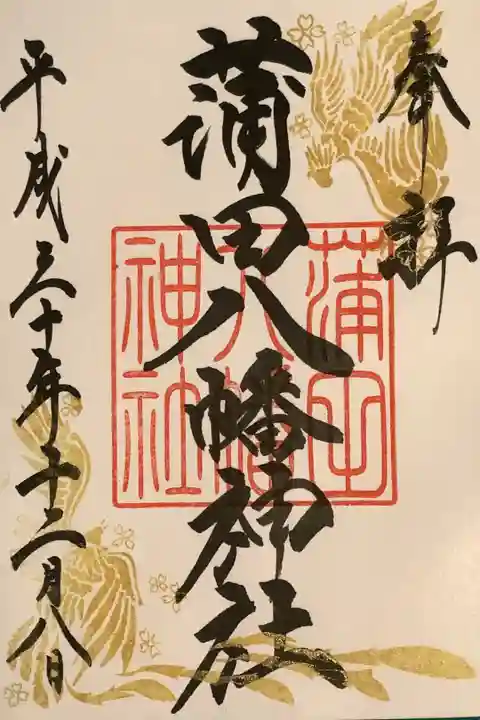 奉拝
蒲田八幡神社
平成三十年十二月八日
蒲田
八幡
神社